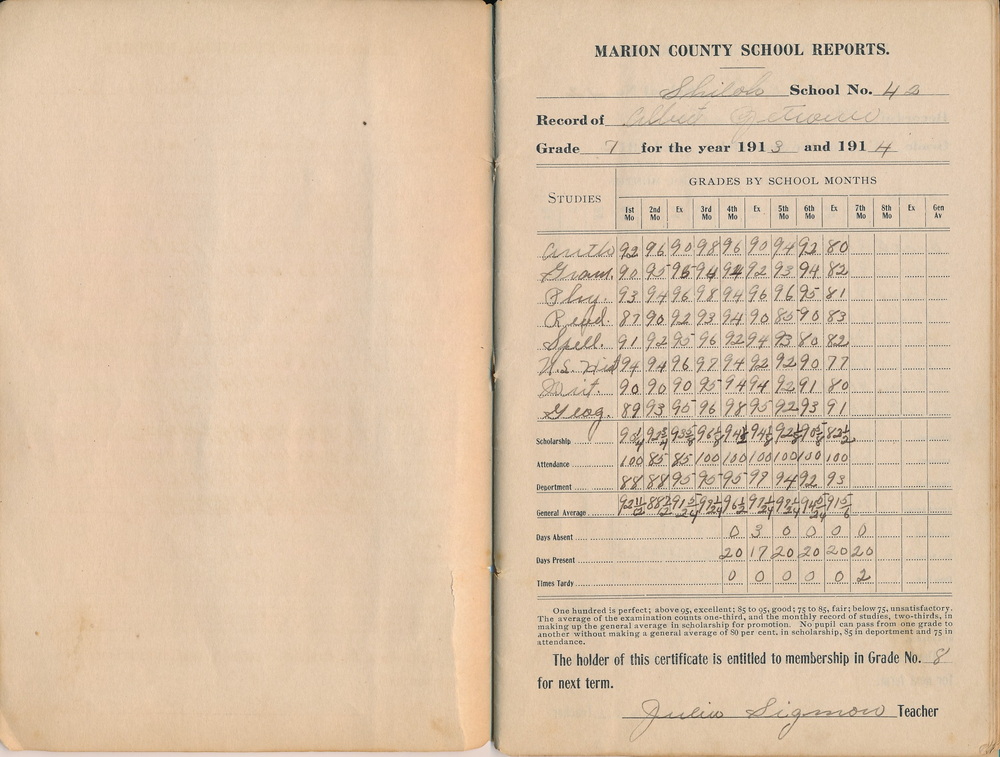 MARION COUNTY SCHOOL REPORTS.
Shiloh School No. 42
Record of Albert
Grade 7 for the year 1913 and 1914
STUDIES
GRADES BY SCHOOL MONTHS
1st Mo 2nd Mo Ex 3rd Mo 4th Mo Ex 5th Mo 6th Mo Ex 7th Mo 8th Mo Ex Gen Av
Arith 92 96 90 98 96 90 94 92 80
Gram. 90 95 96 94 94 92 93 94 82
Phy. 93 94 96 98 94 96 96 95 81
Read. 87 90 92 93 94 90 85 90 83
Spell. 91 92 95 96 92 94 93 80 82
U.S. Hist 94 94 96 97 94 92 92 90 77
90 90 90 95 94 94 92 91 80
Geog. 89 93 95 96 98 95 92 93 91
Scholarship
Attendance 100 85 85 100 100 100 100 100 100
Deportment 88 88 95 95 95 97 94 92 93
General Average
Days Absent 0 3 0 0 0 0
Days Present 20 17 20 20 20 20
Times Tardy 0 0 0 0 0 2
One hundred is perfect; above 95, excellent; 85 to 95, good; 75 to 85, fair; below 75, unsatisfactory.
The average of the examination counts one-third, and the monthly record of studies, two-thirds, in
making up the general average in scholarship for promotion. No pupil can pass from one grade to
another without making a general average of 80 per cent. in scholarship, 85 in deportment and 75 in
attendance.
The holder of this certificate is entitled to membership in Grade No. 8
for next term.
Julia Sigmon Teacher